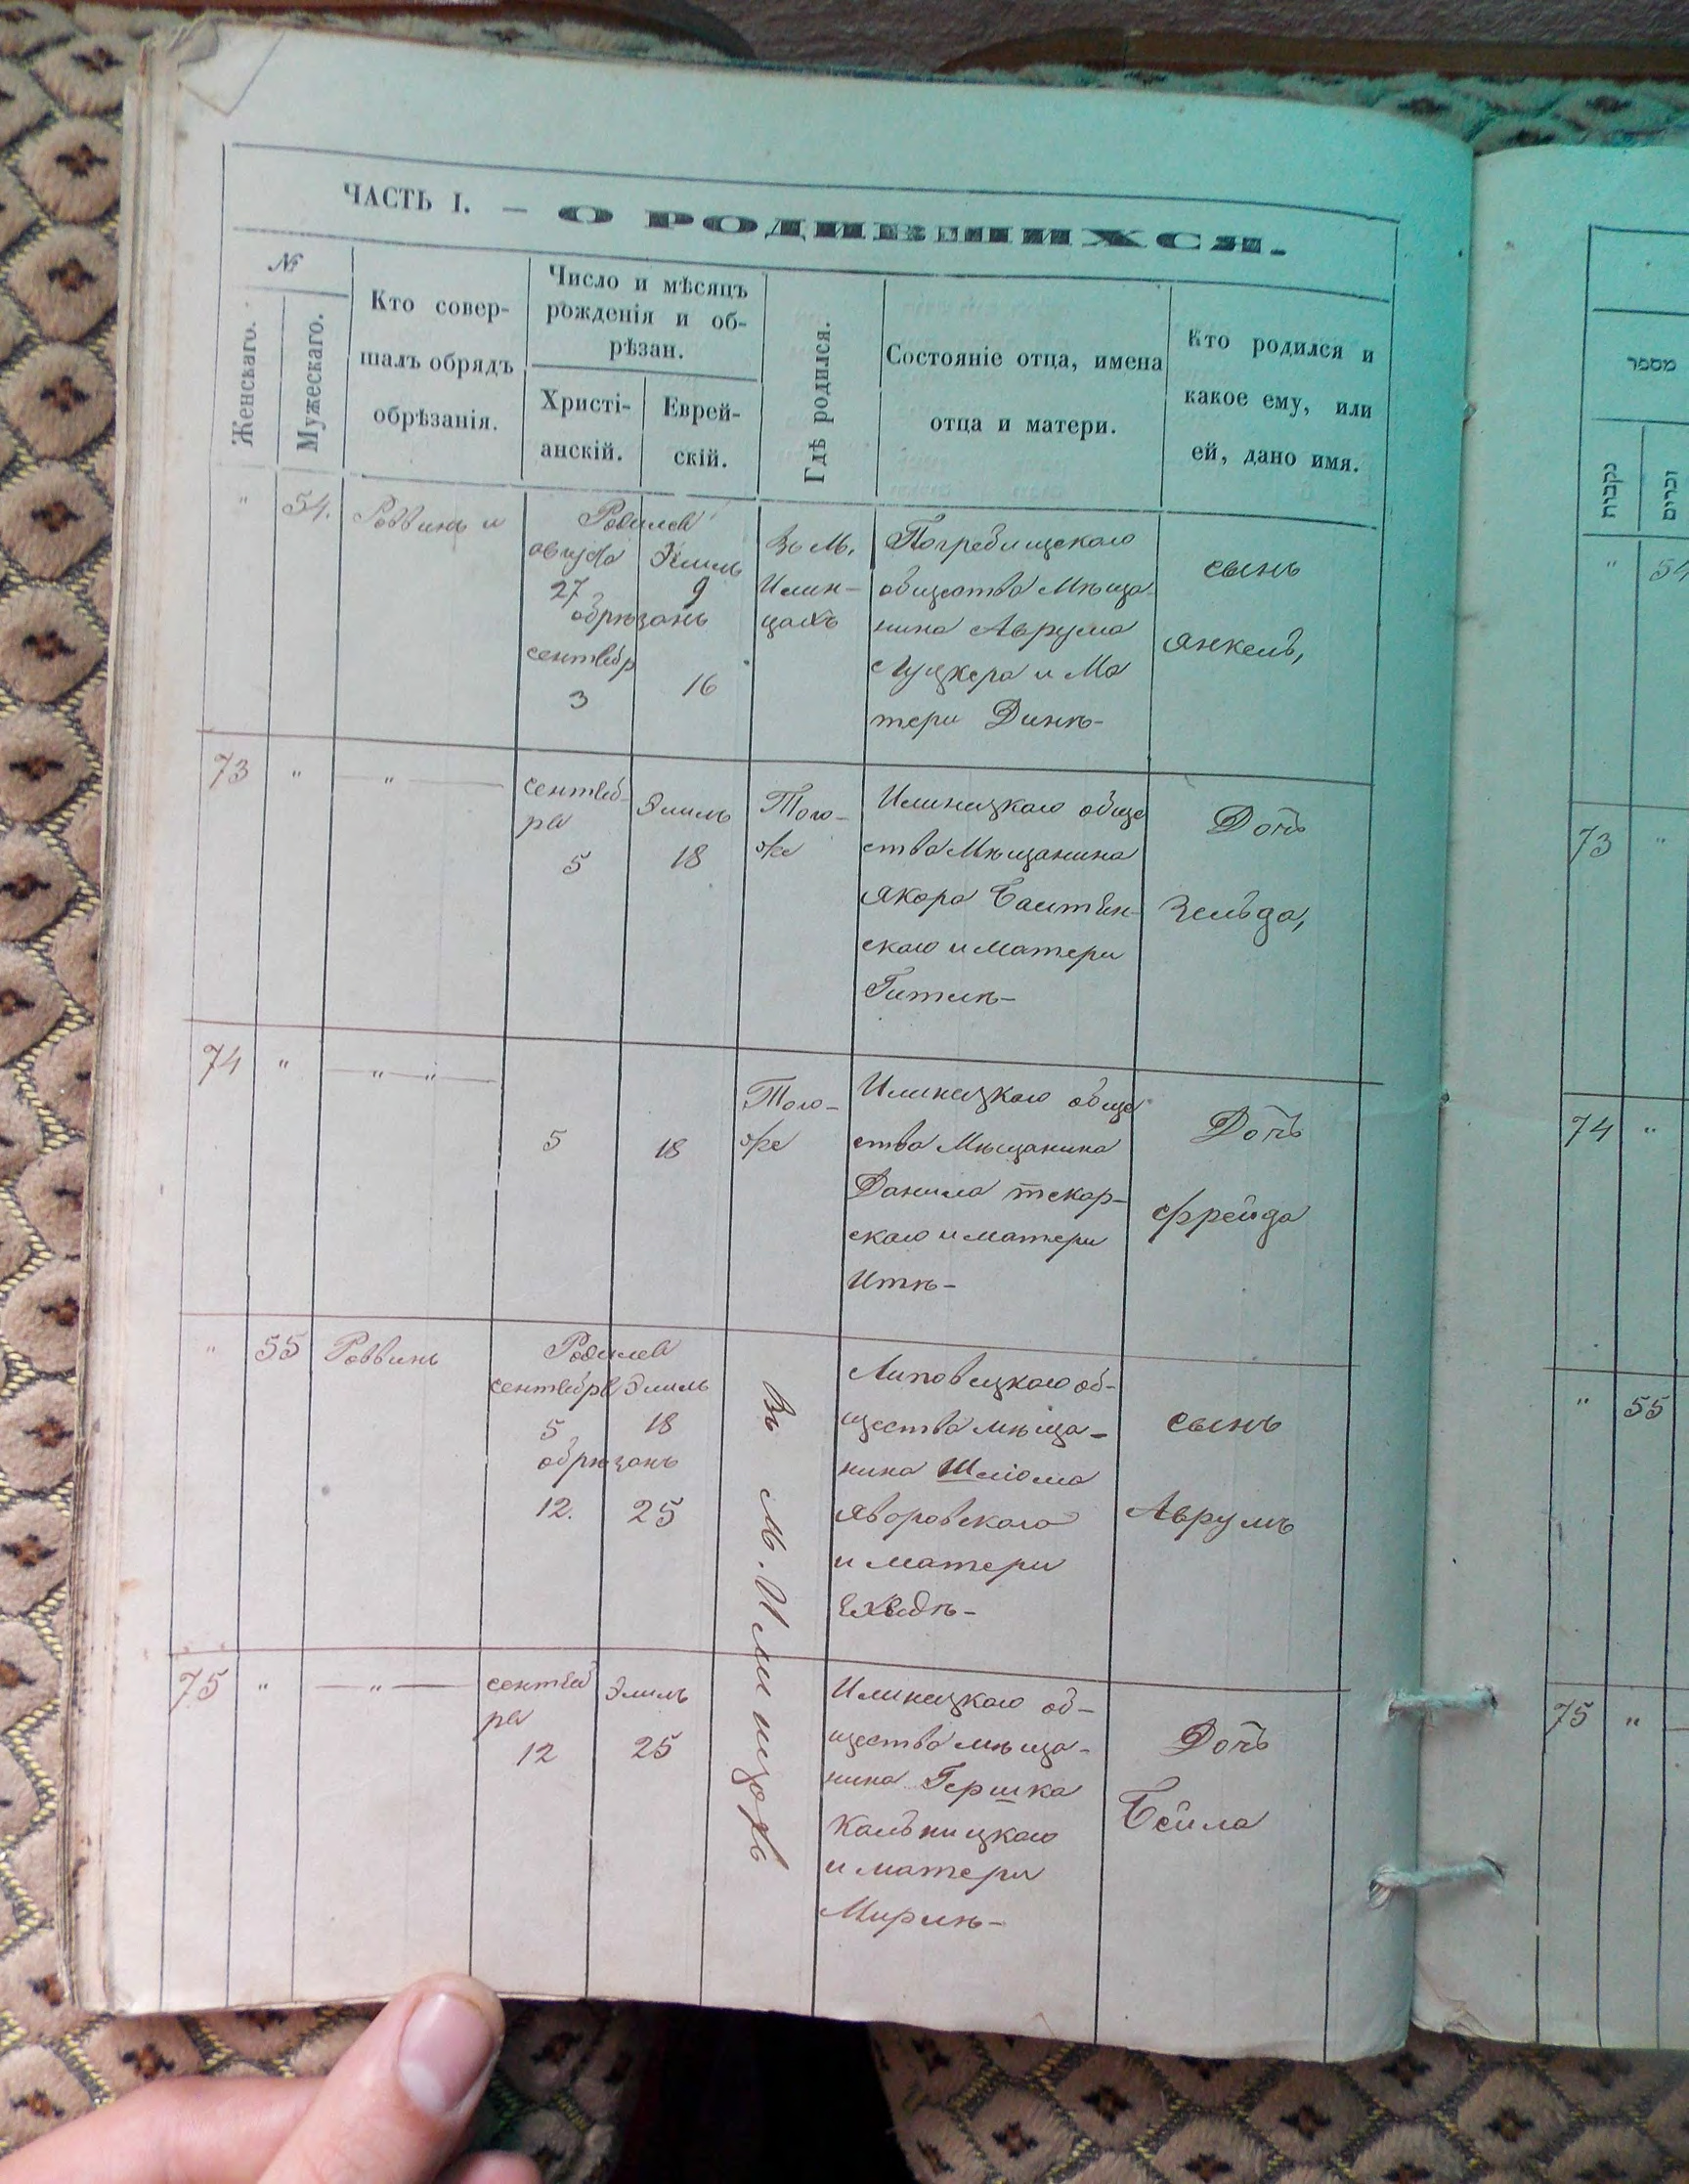 ЧАСТЬ I. — О РОДИВШИХСЯ.
№
Женскаго.
Мужескаго.
Кто совер-
шалъ обрядъ
обрѣзанія.
Число и мѣсяцъ
рожденія и об-
рѣзан.
Христі-
анскій.
Еврей-
скій.
Гдѣ родился.
Состояніе отца, имена
отца и матери.
Кто родился и
какое ему, или
ей, дано имя.
" 54. Раввинъ и
Родился
августа Элиль
27 9
обрѣзанъ
сентябр
3 16
Въ М.
Илин-
цахъ
Погребищскаго
общества Мѣща-
нина Аврума
Луцкера и Ма
тери Динѣ-
сынъ
Янкель,
73 " — " —
сентяб-
ря
5
Элиль
18
Того-
же
Илинецкаго обще
ства Мѣщанина
скаго и матери
Гитлѣ-
Дочь
Зельда,
74 " — " " —
5 18
Того-
же
Илинецкаго обще
ства Мѣщанина
Данила
скаго и матери
Иткѣ-
Дочь
Фрейда
" 55 Раввинъ
Родился
сентября Элиль
5 18
обрѣзанъ
12. 25
Въ м. Илинцахъ
Липовецкаго об-
щества мѣща-
нина Шліома
Яворовскаго
и матери
сынъ
Аврумъ
75 " — " —
сентяб
ря
12
Элиль
25
Илинецкаго об-
щества мѣща-
нина Гершка
Кальницкаго
и матери
Мирлѣ-
Дочь
Бейла
מספר
נקבות
זכרים
" 54
73 "
74 "
" 55
75 "